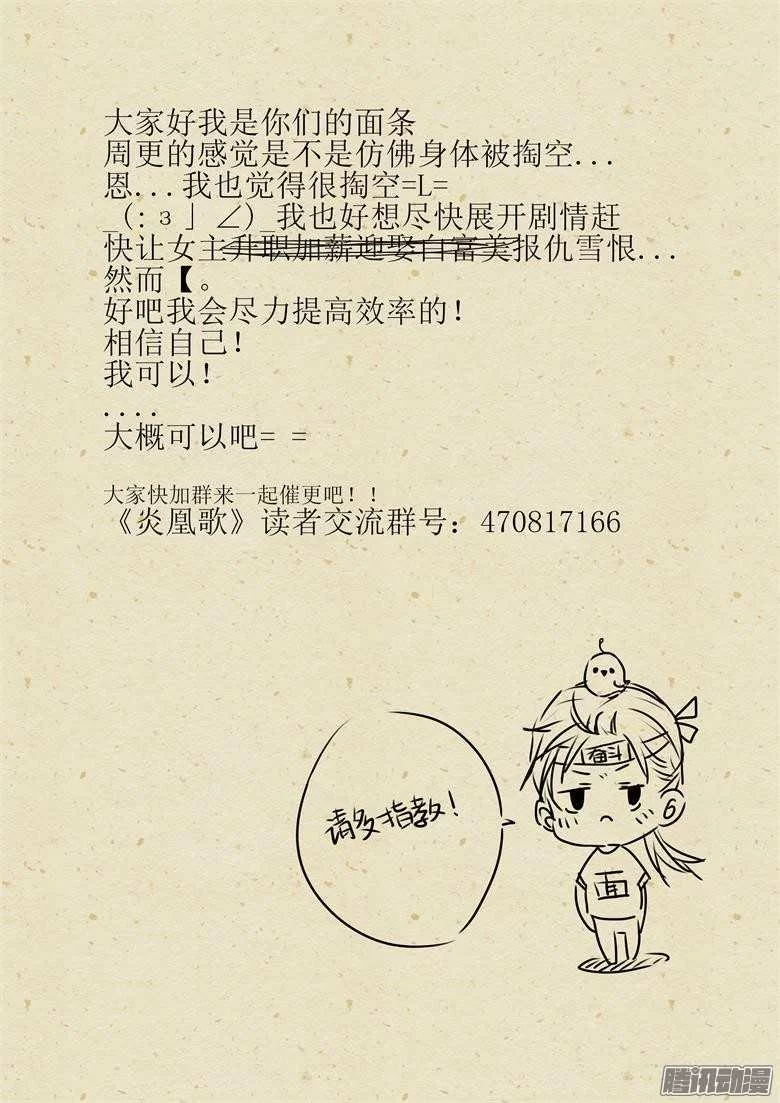 大家好我是你们的面条
周更的感觉是不是仿佛身体被掏空...
恩...我也觉得很掏空=L=
_(:з」∠)_我也好想尽快展开剧情赶
快让女主升职加薪迎娶白富美报仇雪恨...
然而【。
好吧我会尽力提高效率的!
相信自己!
我可以!
....
大概可以吧= =
大家快加群来一起催更吧!!
《炎凰歌》读者交流群号: 470817166
奋斗
请多指教!
面
腾讯动漫